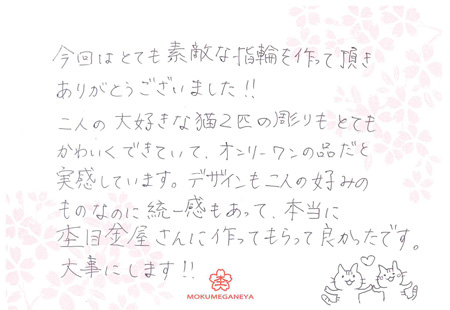 今回はとても素敵な指輪を作って頂き
ありがとうございました!!
二人の大好きな猫2匹の彫りもとても
かわいくできていて、オンリーワンの品だと
実感しています。デザインも二人の好みの
ものなのに統一感もあって、本当に
杢目金屋さんに作ってもらって良かったです。
大事にします!!
杢
MOKUMEGANEYA